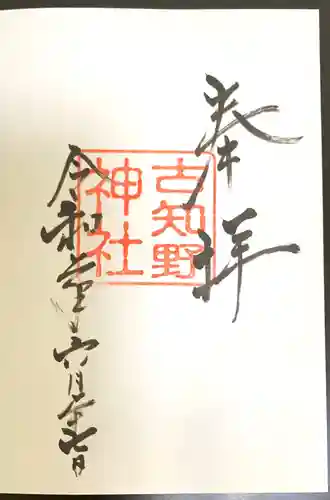 奉拝
古知野
神社
令和年六月七日